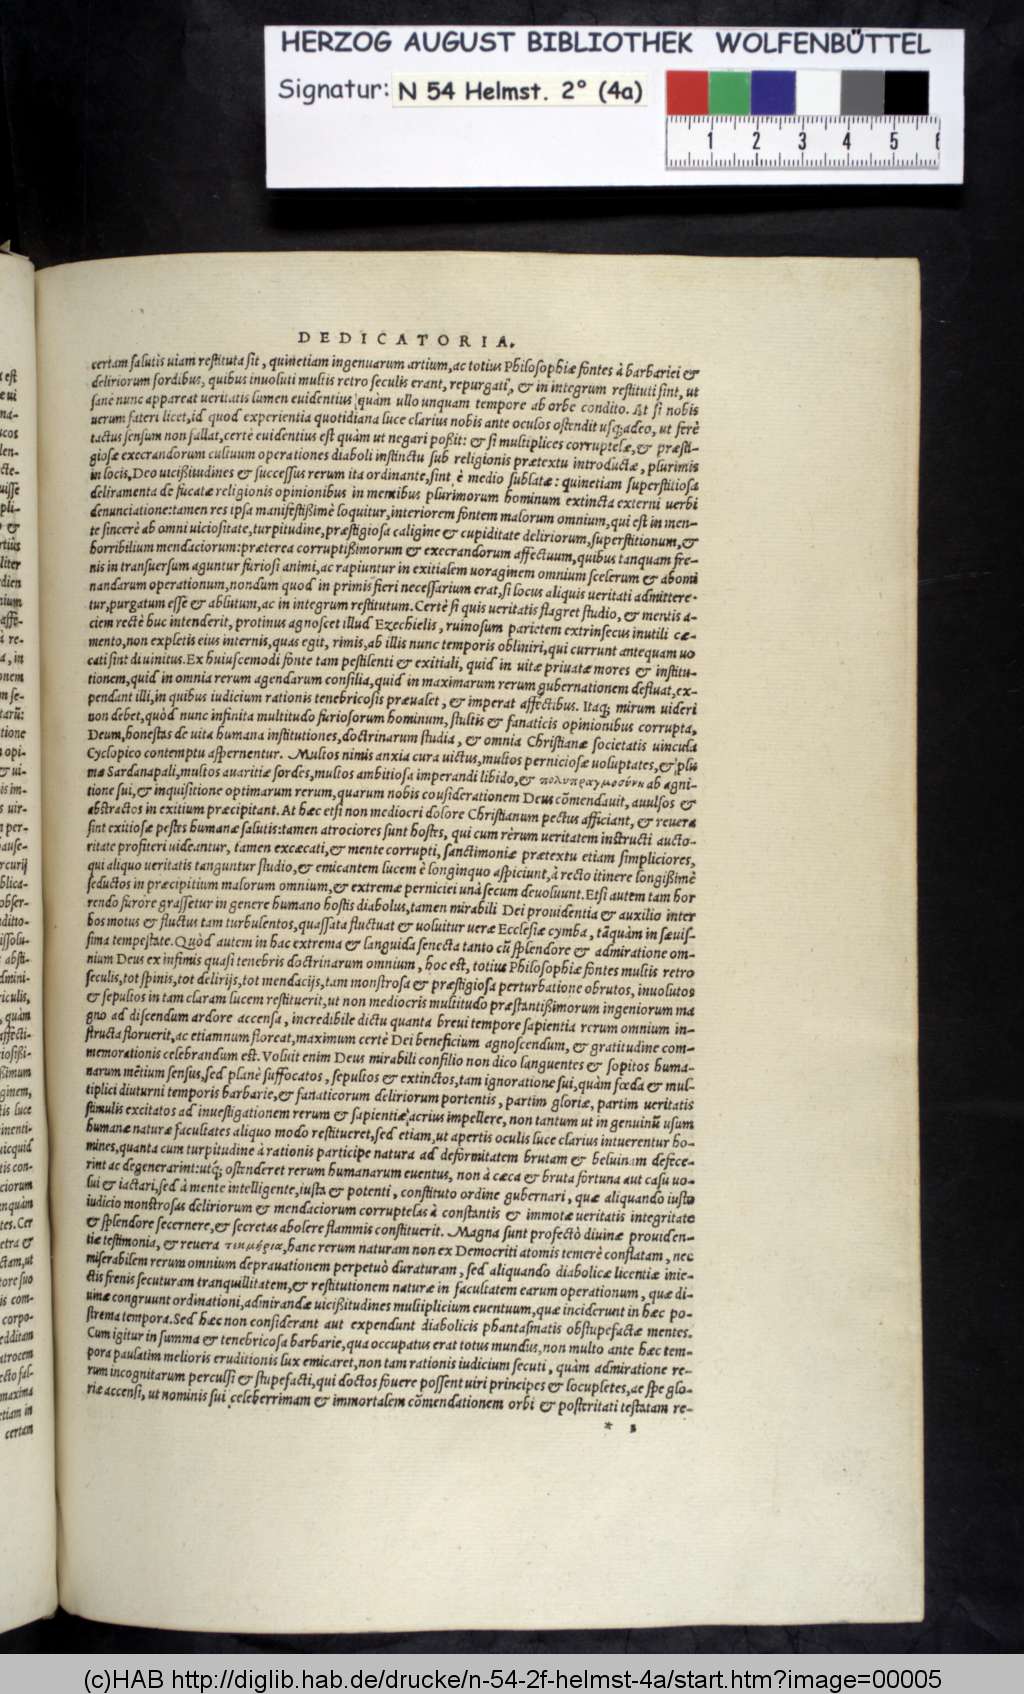 HERZOG AUGUST BIBLIOTHEK WOLFENBÜTTEL
Signatur: N 54 Helmst. 2° (4a)
1 2 3 4 5 6
DEDICATORIA.
certam salutis uiam restituta sit, quinetiam ingenuarum artium, ac totius Philosophiæ fontes à barbariei &
deliriorum sordibus, quibus inuoluti multis retro seculis erant, repurgati, & in integrum restituti sint, ut
sanè nunc appareat ueritatis lumen euidentius quàm ullo unquam tempore ab orbe condito. At si nobis
uerum fateri licet, id quod experientia quotidiana luce clarius nobis ante oculos ostendit usq; adeo, ut ferè
tactus sensum non fallat, certè euidentius est quàm ut negari poßit: & si multiplices corruptelæ, & præsti-
giosæ execrandorum cultuum operationes diaboli instinctu sub religionis prætextu introductæ, plurimis
in locis, Deo uicißitudines & successus rerum ita ordinante, sint è medio sublatæ: quinetiam superstitiosa
deliramenta de fucatæ religionis opinionibus in mentibus plurimorum hominum extincta externi uerbi
denunciatione: tamen res ipsa manifestißimè loquitur, interiorem fontem malorum omnium, qui est in men-
te sincerè ab omni uiciositate, turpitudine, præstigiosa caligine & cupiditate deliriorum, superstitionum, &
horribilium mendaciorum: præterea corruptißimorum & execrandorum affectuum, quibus tanquam fre-
nis in transuersum aguntur furiosi animi, ac rapiuntur in exitialem uoraginem omnium scelerum & abomi
nandarum operationum, nondum quod in primis fieri necessarium erat, si locus aliquis ueritati admittere-
tur, purgatum esse & ablutum, ac in integrum restitutum. Certè si quis ueritatis flagret studio, & mentis a-
ciem rectè huc intenderit, protinus agnoscet illud Ezechielis, ruinosum parietem extrinsecus inutili cæ-
mento, non expletis eius internis, quas egit, rimis, ab illis nunc temporis obliniri, qui currunt antequam uo
cati sint diuinitus. Ex huiuscemodi fonte tam pestilenti & exitiali, quid in uitæ priuatæ mores & institu-
tionem, quid in omnia rerum agendarum consilia, quid in maximarum rerum gubernationem defluat, ex-
pendant illi, in quibus iudicium rationis tenebricosis præualet, & imperat affectibus. Itaq; mirum uideri
non debet, quòd nunc infinita multitudo furiosorum hominum, stultis & fanaticis opinionibus corrupta,
Deum, honestas de uita humana institutiones, doctrinarum studia, & omnia Christianæ societatis uincula
Cyclopico contemptu aspernentur. Multos nimis anxia cura uictus, multos perniciosæ uoluptates, & plus
mæ Sardanapali, multos auaritiæ sordes, multos ambitiosa imperandi libido, & πολυπραγμοσύνη ab agni-
tione sui, & inquisitione optimarum rerum, quarum nobis considerationem Deus cõmendauit, auulsos &
abstractos in exitium præcipitant. At hæc etsi non mediocri dolore Christianum pectus afficiant, & reuera
sint exitiosæ pestes humanæ salutis: tamen atrociores sunt hostes, qui cum rerum ueritatem instructi aucto-
ritate profiteri uideantur, tamen excæcati, & mente corrupti, sanctimoniæ prætextu etiam simpliciores,
qui aliquo ueritatis tanguntur studio, & emicantem lucem è longinquo aspiciunt, à recto itinere longißimè
seductos in præcipitium malorum omnium, & extremæ perniciei unà secum deuoluunt. Etsi autem tam hor
rendo furore grassetur in genere humano hostis diabolus, tamen mirabili Dei prouidentia & auxilio inter
hos motus & fluctus tam turbulentos, quassata fluctuat & uoluitur ueræ Ecclesiæ cymba, tãquàm in sæuis-
sima tempestate. Quòd autem in hac extrema & languida senecta tanto cũ splendore & admiratione om-
nium Deus ex infimis quasi tenebris doctrinarum omnium, hoc est, totius Philosophiæ fontes multis retro
seculis, tot spinis, tot delirijs, tot mendacijs, tam monstrosa & præstigiosa perturbatione obrutos, inuolutos
& sepultos in tam claram lucem restituerit, ut non mediocris multitudo præstantißimorum ingeniorum ma
gno ad discendum ardore accensa, incredibile dictu quanta breui tempore sapientia rerum omnium in-
structa floruerit, ac etiamnum floreat, maximum certè Dei beneficium agnoscendum, & gratitudine com-
memorationis celebrandum est. Voluit enim Deus mirabili consilio non dico languentes & sopitos huma-
narum mẽtium sensus, sed planè suffocatos, sepultos & extinctos, tam ignoratione sui, quàm fœda & mul-
tiplici diuturni temporis barbarie, & fanaticorum deliriorum portentis, partim gloriæ, partim ueritatis
stimulis excitatos ad inuestigationem rerum & sapientiæ acrius impellere, non tantum ut in genuinũ usum
humanæ naturæ facultates aliquo modo restitueret, sed etiam, ut apertis oculis luce clarius intuerentur ho-
mines, quanta cum turpitudine à rationis participe natura ad deformitatem brutam & beluinam defece-
rint ac degenerarint: utq; ostenderet rerum humanarum euentus, non à cæca & bruta fortuna aut casu uo-
lui & iactari, sed à mente intelligente, iusta & potenti, constituto ordine gubernari, quæ aliquando iusto
iudicio monstrosas deliriorum & mendaciorum corruptelas à constantis & immotæ ueritatis integritate
& splendore secernere, & secretas abolere flammis constituerit. Magna sunt profectò diuinæ prouiden-
tiæ testimonia, & reuera τεκμήρια, hanc rerum naturam non ex Democriti atomis temerè conflatam, nec
miserabilem rerum omnium deprauationem perpetuò duraturam, sed aliquando diabolicæ licentiæ inie-
ctis frenis secuturam tranquillitatem, & restitutionem naturæ in facultatem earum operationum, quæ di-
uinæ congruunt ordinationi, admirandæ uicißitudines multiplicium euentuum, quæ inciderunt in hæc po-
strema tempora. Sed hæc non considerant aut expendunt diabolicis phantasmatis obstupefactæ mentes.
Cum igitur in summa & tenebricosa barbarie, qua occupatus erat totus mundus, non multo ante hæc tem-
pora paulatim melioris eruditionis lux emicaret, non tam rationis iudicium secuti, quàm admiratione re-
rum incognitarum perculsi & stupefacti, qui doctos fouere possent uiri principes & locupletes, ac spe glo-
riæ accensi, ut nominis sui celeberrimam & immortalem cõmendationem orbi & posteritati testatam re-
(c)HAB http://diglib.hab.de/drucke/n-54-2f-helmst-4a/start.htm?image=00005